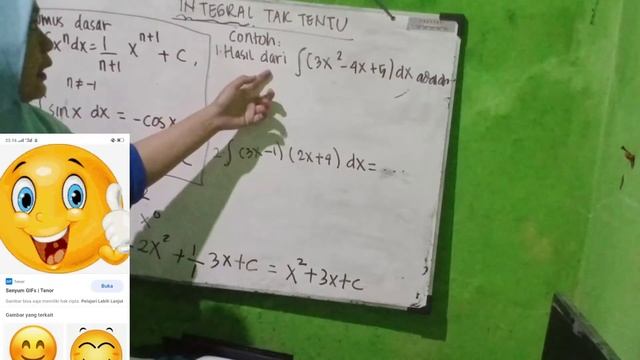 INTEGRAL TAK TENTU
mus dasar
∫x^n dx = 1/(n+1) x^(n+1) + C,
n ≠ -1
sin x dx = -cos x
Contoh:
1. Hasil dari ∫(3x² - 4x + 5) dx adalah
2 ∫ (3x-1) (2x+4) dx = ....
x⁰
2x² + 1/1 3x + C = x² + 3x + C
Tenor
Senyum GIFs | Tenor
Buka
Gambar bisa saja memiliki hak cipta. Pelajari Lebih Lanjut
Gambar yang terkait